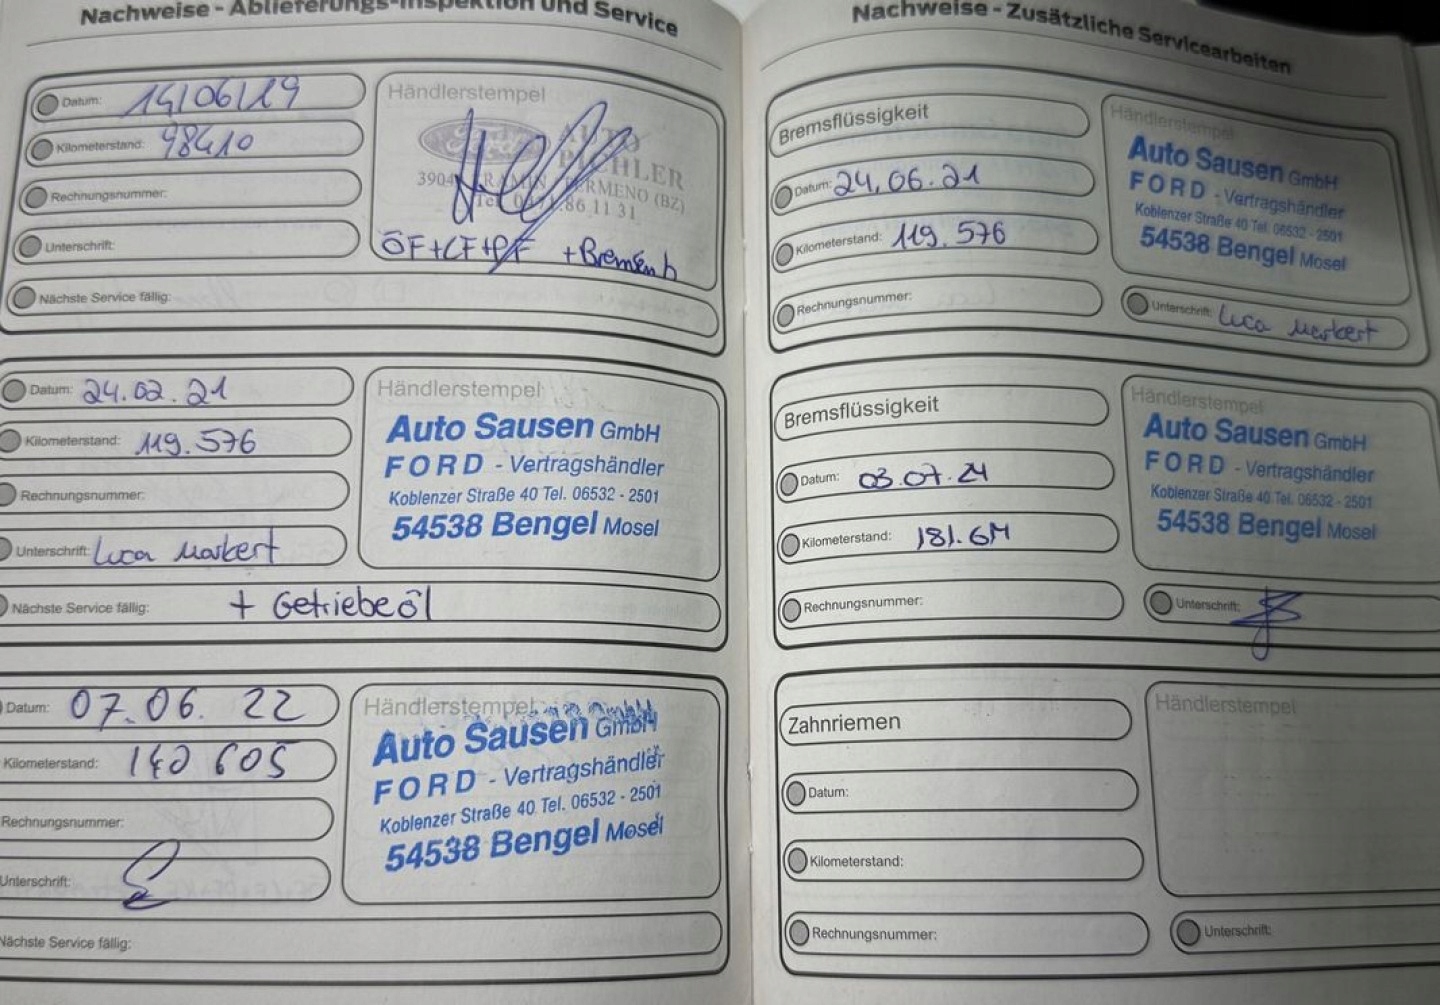 Nachweise - Ablieferungs-Inspektion und Service
Datum: 14/06/19
Kilometerstand: 98410
Rechnungsnummer:
Unterschrift:
Nächste Service fällig:
Händlerstempel
Ford
AUTO
PICHLER
TERMENO (BZ)
86 11 31
ÖF+LF+PF +Bremsen h
Datum: 24.02.21
Kilometerstand: 119.576
Rechnungsnummer:
Unterschrift: Luca Markert
Nächste Service fällig: + Getriebeöl
Händlerstempel
Auto Sausen GmbH
FORD - Vertragshändler
Koblenzer Straße 40 Tel. 06532 - 2501
54538 Bengel Mosel
Datum: 07.06.22
Kilometerstand: 140 605
Rechnungsnummer:
Unterschrift:
Nächste Service fällig:
Händlerstempel
Auto Sausen GmbH
FORD - Vertragshändler
Koblenzer Straße 40 Tel. 06532 - 2501
54538 Bengel Mosel
Nachweise - Zusätzliche Servicearbeiten
Bremsflüssigkeit
Datum: 24.06.21
Kilometerstand: 119.576
Rechnungsnummer:
Händlerstempel
Auto Sausen GmbH
FORD - Vertragshändler
Koblenzer Straße 40 Tel. 06532 - 2501
54538 Bengel Mosel
Unterschrift: Luca Markert
Bremsflüssigkeit
Datum: 03.07.24
Kilometerstand:
Rechnungsnummer:
Händlerstempel
Auto Sausen GmbH
FORD - Vertragshändler
Koblenzer Straße 40 Tel. 06532 - 2501
54538 Bengel Mosel
Unterschrift:
Zahnriemen
Datum:
Kilometerstand:
Rechnungsnummer:
Händlerstempel
Unterschrift: